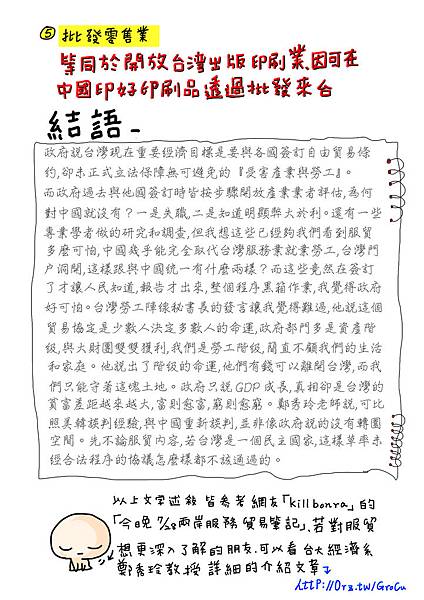 ⑤ 批發零售業
等同於開放台灣出版印刷業,因可在
中國印好印刷品透過批發來台
結語-
政府說台灣現在重要經濟目標是要與各國簽訂自由貿易條
約,卻未正式立法保障無可避免的『受害產業與勞工』。
而政府過去與他國簽訂時皆按步驟開放產業業者評估,為何
對中國就沒有?一是失職,二是知道明顯弊大於利。還有一些
專業學者做的研究和調查,但我想這些已經夠我們看到服貿
多麼可怕,中國幾乎能完全取代台灣服務業就業勞工,台灣門
戶洞開,這樣跟與中國統一有什麼兩樣?而這些竟然在簽訂
了才讓人民知道,報告才出來,整個程序黑箱作業,我覺得政府
好可怕。台灣勞工陣線秘書長的發言讓我覺得難過,他說這個
貿易協定是少數人決定多數人的命運,政府部門多是資產階
級,與大財團雙雙獲利,我們是勞工階級,簡直不顧我們的生活
和家庭。他說出了階級的命運,他們有錢可以離開台灣,而我
們只能守著這塊土地。政府只說GDP成長,真相卻是台灣的
貧富差距越來越大,富則愈富,窮則愈窮。鄭秀玲老師說,可比
照美韓談判經驗,與中國重新談判,並非像政府說的沒有轉圜
空間。先不論服貿內容,若台灣是一個民主國家,這樣草率未
經合法程序的協議怎麼樣都不該通過的。
以上文字述敘皆參考網友「killbonra」的
「今晚7/28兩岸服務貿易筆記」、若對服貿
想更深入了解的朋友,可以看台大經濟系
鄭秀玲教授 詳細的介紹文章
HTTP://0rz.tw/GroCu